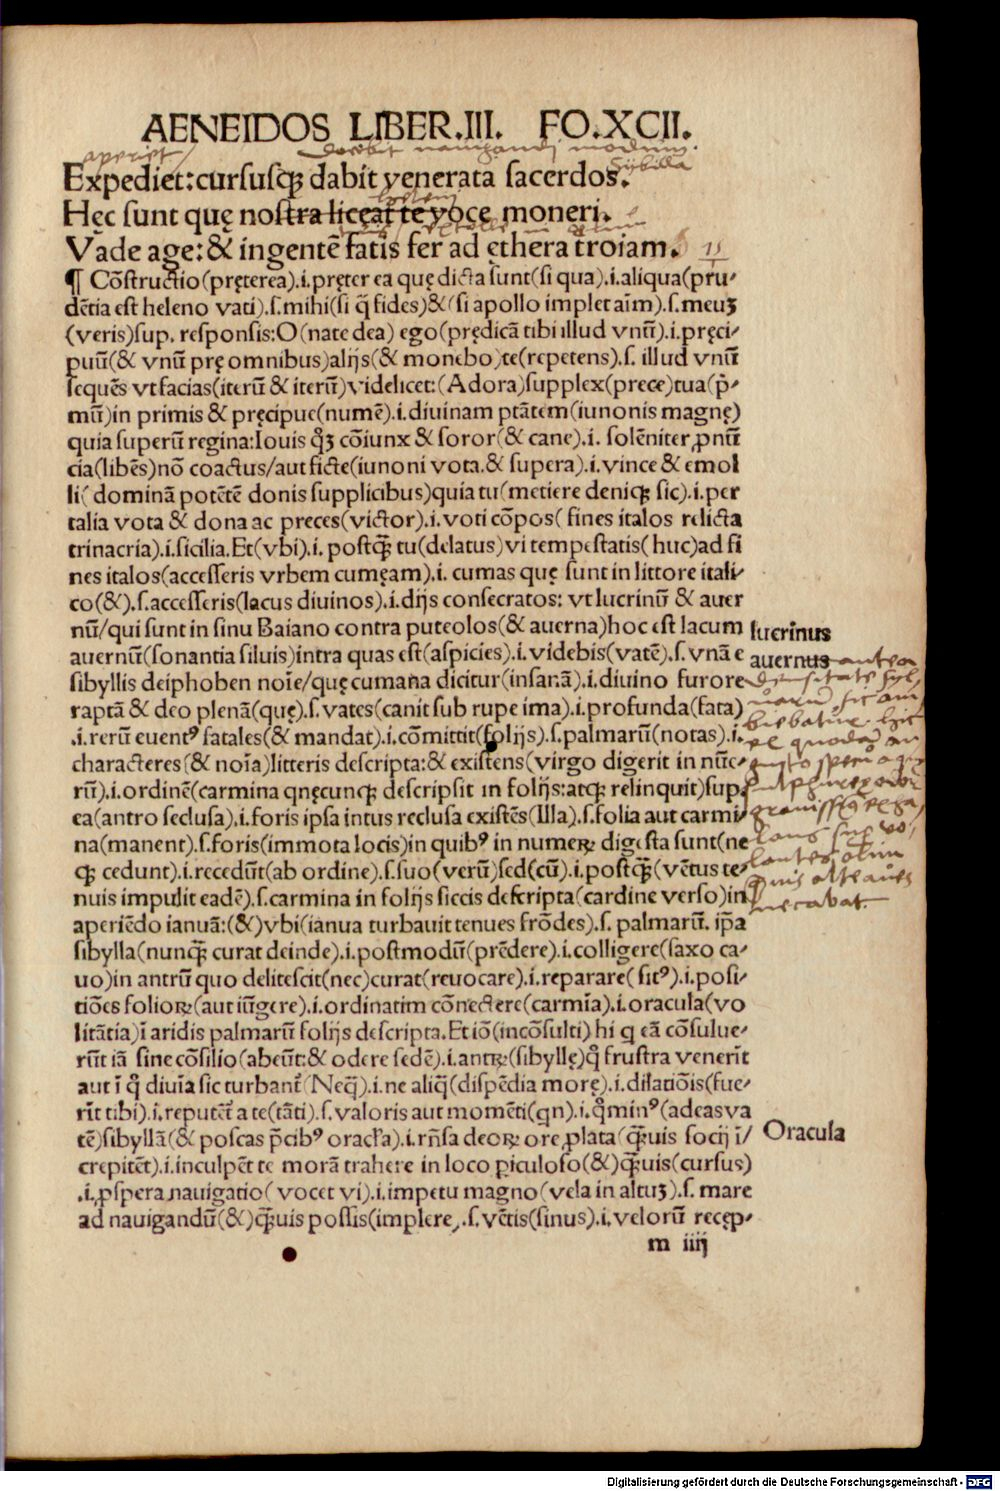 AENEIDOS LIBER.III. FO.XCII.
aperiet
docebit nauigandi modum.
Expediet:cursusqꝫ dabit venerata sacerdos.
Sybilla
Hęc sunt quę nostra liceat te voce moneri.
Vade age:& ingentē fatis fer ad ęthera troiam.
¶ Cōstructio(pręterea).i.pręter ea quę dicta sunt(si qua).i.aliqua(pru-
dētia est heleno vati).s.mihi(si q̄ fides)&(si apollo implet aīm).s.meuꝫ
(veris)sup. responsis:O(nate dea) ego(prędicā tibi illud vnū).i.pręci-
puū(& vnū prę omnibus)alijs(& monebo)te(repetens).s. illud vnū
sequēs vt facias(iterū & iterū)videlicet:(Adora)supplex(prece)tua(p̄-
mū)in primis & pręcipue(numē).i.diuinam ptātem(iunonis magnę)
quia superū regina:Iouis qꝫ cōiunx & soror(& cane).i. solēniter ꝓnū
cia(libēs)nō coactus/aut ficte(iunoni vota.& supera).i.vince & emol
li(dominā potētē donis supplicibus)quia tu(metiere deniqꝫ sic).i.per
talia vota & dona ac preces(victor).i.voti cōpos(fines italos relicta
trinacria).i.sicilia.Et(vbi).i. postqꝫ̄ tu(delatus)vi tempestatis(huc)ad fi
nes italos(accesseris vrbem cumęam).i. cumas quę sunt in littore itali-
co(&).s.accesseris(lacus diuinos).i.dijs consecratos: vt lucrinū & auer
nū/qui sunt in sinu Baiano contra puteolos(& auerna)hoc est lacum
lucrinus
auernū(sonantia siluis)intra quas est(aspicies).i.videbis(vatē).s. vnā e
auernus
sibyllis deiphoben noīe/quę cumana dicitur(insanā).i.diuino furore
raptā & deo plenā(quę).s.vates(canit sub rupe ima).i.profunda(fata)
.i.rerū euentꝰ fatales(& mandat).i.cōmittit(folijs).s.palmarū(notas).i.
characteres(& noīa)litteris descripta:& existens(virgo digerit in nūe-
rū).i.ordinē(carmina qnęcunqꝫ descripsit in folijs:atqꝫ relinquit)sup
ea(antro seclusa).i.foris ipsa intus reclusa existēs(Illa).s.folia aut carmi-
na(manent).s.foris(immota locis)in quibꝰ in numeꝝ digesta sunt(ne
qꝫ cedunt).i.recedūt(ab ordine).s.suo(verū)sed(cū).i.postqꝫ̄(vētus te-
nuis impulit eadē).s.carmina in folijs siccis descripta(cardine verso)in
aperiēdo ianuā:(&)vbi(ianua turbauit tenues frōdes).s. palmarū. ip̄a
sibylla(nunqꝫ̄ curat deinde).i.postmodū(prēdere).i.colligere(saxo ca-
uo)in antrū quo delitescit(nec)curat(reuocare).i.reparare(sitꝰ).i.posi-
tiōes folioꝝ(aut iūgere).i.ordinatim cōnectere(carmīa).i.oracula(vo
litātia)ī aridis palmarū folijs descripta.Et iō(incōsulti) hi q eā cōsulue-
rūt iā sine cōsilio(abeūt:& odere sedē).i.antꝝ(sibyllę)q̄ frustra venerīt
aut ī q̄ diuīa sic turbant̄ (Neq̄).i.ne aliq̄(dispēdia morę).i.dilatiōis(fue-
rīt tibi).i.reputēt̄ a te(tāti).s.valoris aut momēti(qn).i.q̄minꝰ(adeas va
tē)sibyllā(& poscas p̄cibꝰ oracła).i.rn̄sa deoꝝ ore ꝓlata(qꝫ̄uis socij ī/
Oracula
crepitēt).i.inculpēt te morā trahere in loco ꝑiculoso(&)qꝫ̄uis(cursus)
.i.ꝓspera nauigatio(vocet vi).i.impetu magno(vela in altuꝫ).s. mare
ad nauigandū(&)qꝫ̄uis possis(implere).s.vētis(sinus).i.velorū recęp-
m iiij
Digitalisierung gefördert durch die Deutsche Forschungsgemeinschaft - DFG